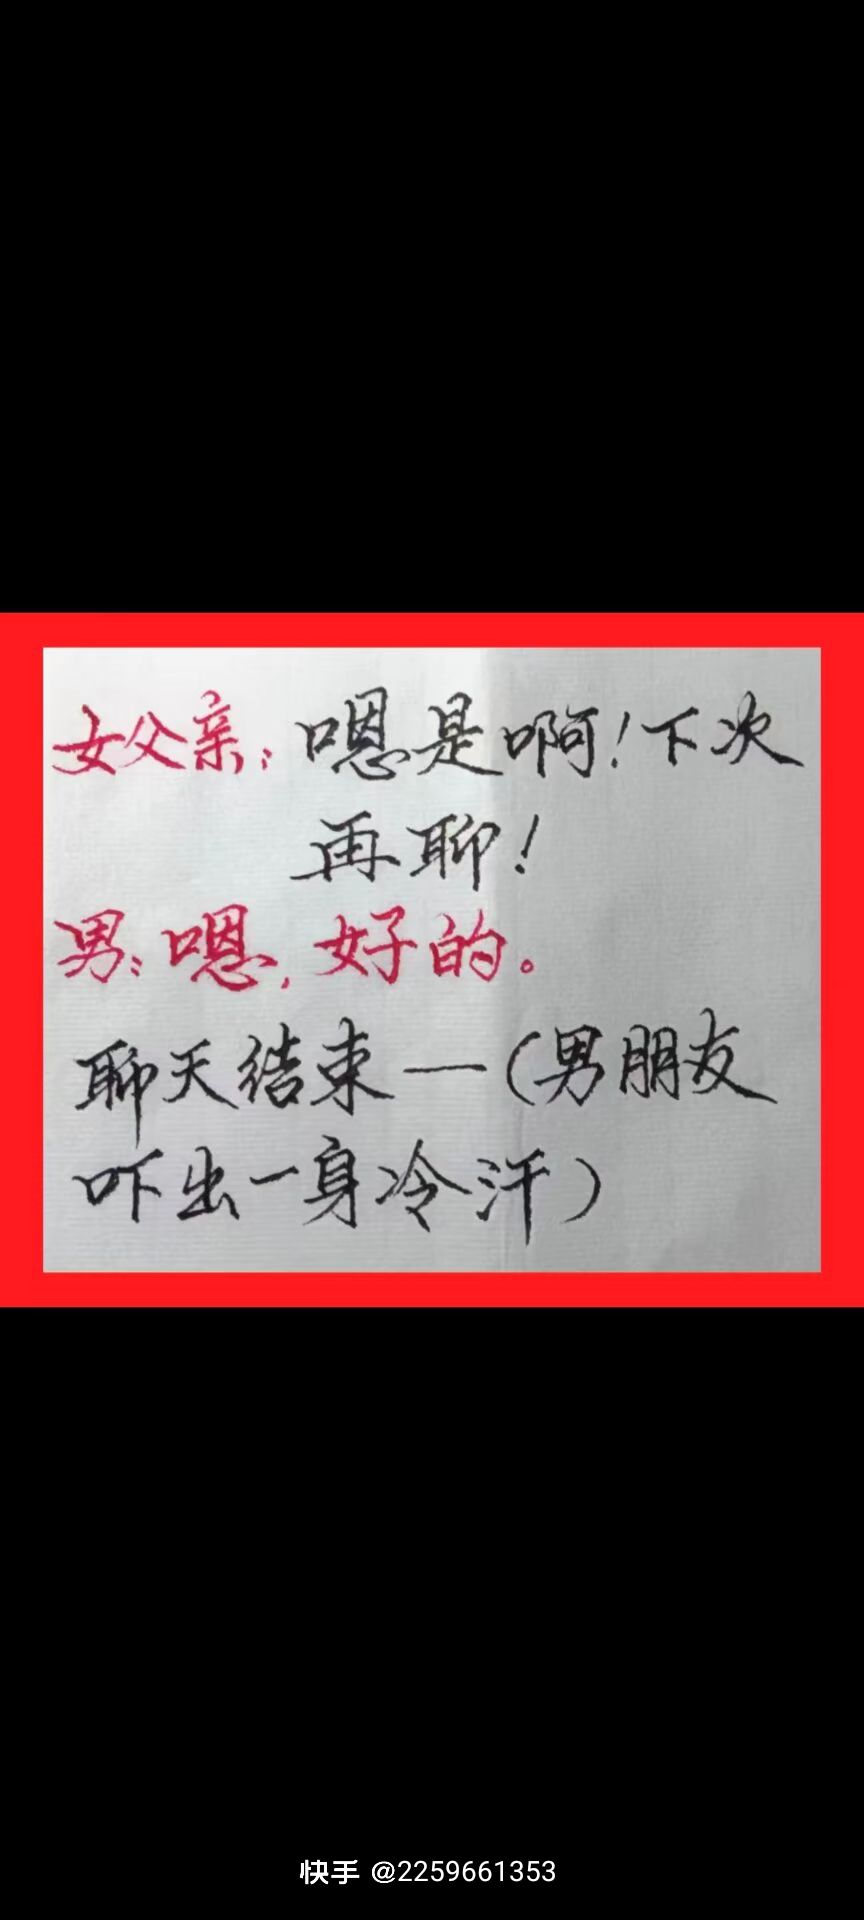 女父亲：嗯是啊！下次
再聊！
男：嗯，好的。
聊天结束—（男朋友
吓出一身冷汗）
快手 @2259661353